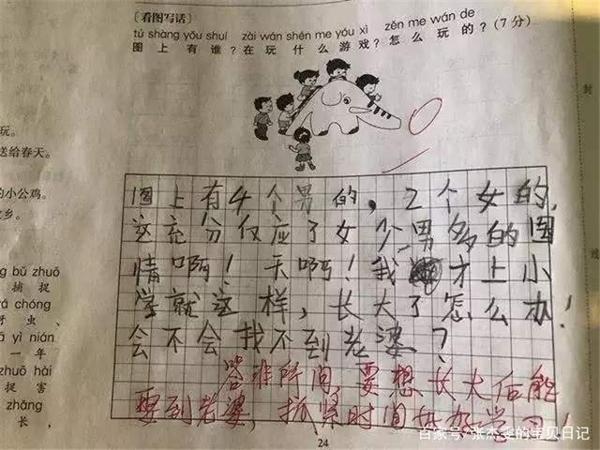 ［看图写话］
tú shàng yǒu shuí zài wán shén me yóu xì zěn me wán de
图上有谁？在玩什么游戏？怎么玩的？（7分）
图上有4个男的，2个女的，
这充分仅应了女少男多的国
情啊！天啊！我才上小
学就这样，长大了怎么办！
会不会找不到老婆？
答非所问，要想长大后能
娶到老婆，抓紧时间学习！
24
玩。
送给春天。
的小公鸡。
bǔ zhuō
捕 捉
chóng
虫、
yì nián
一 年
zhuō hài
捉 害
zhǎng
长，
封
百家号/的宝贝日记